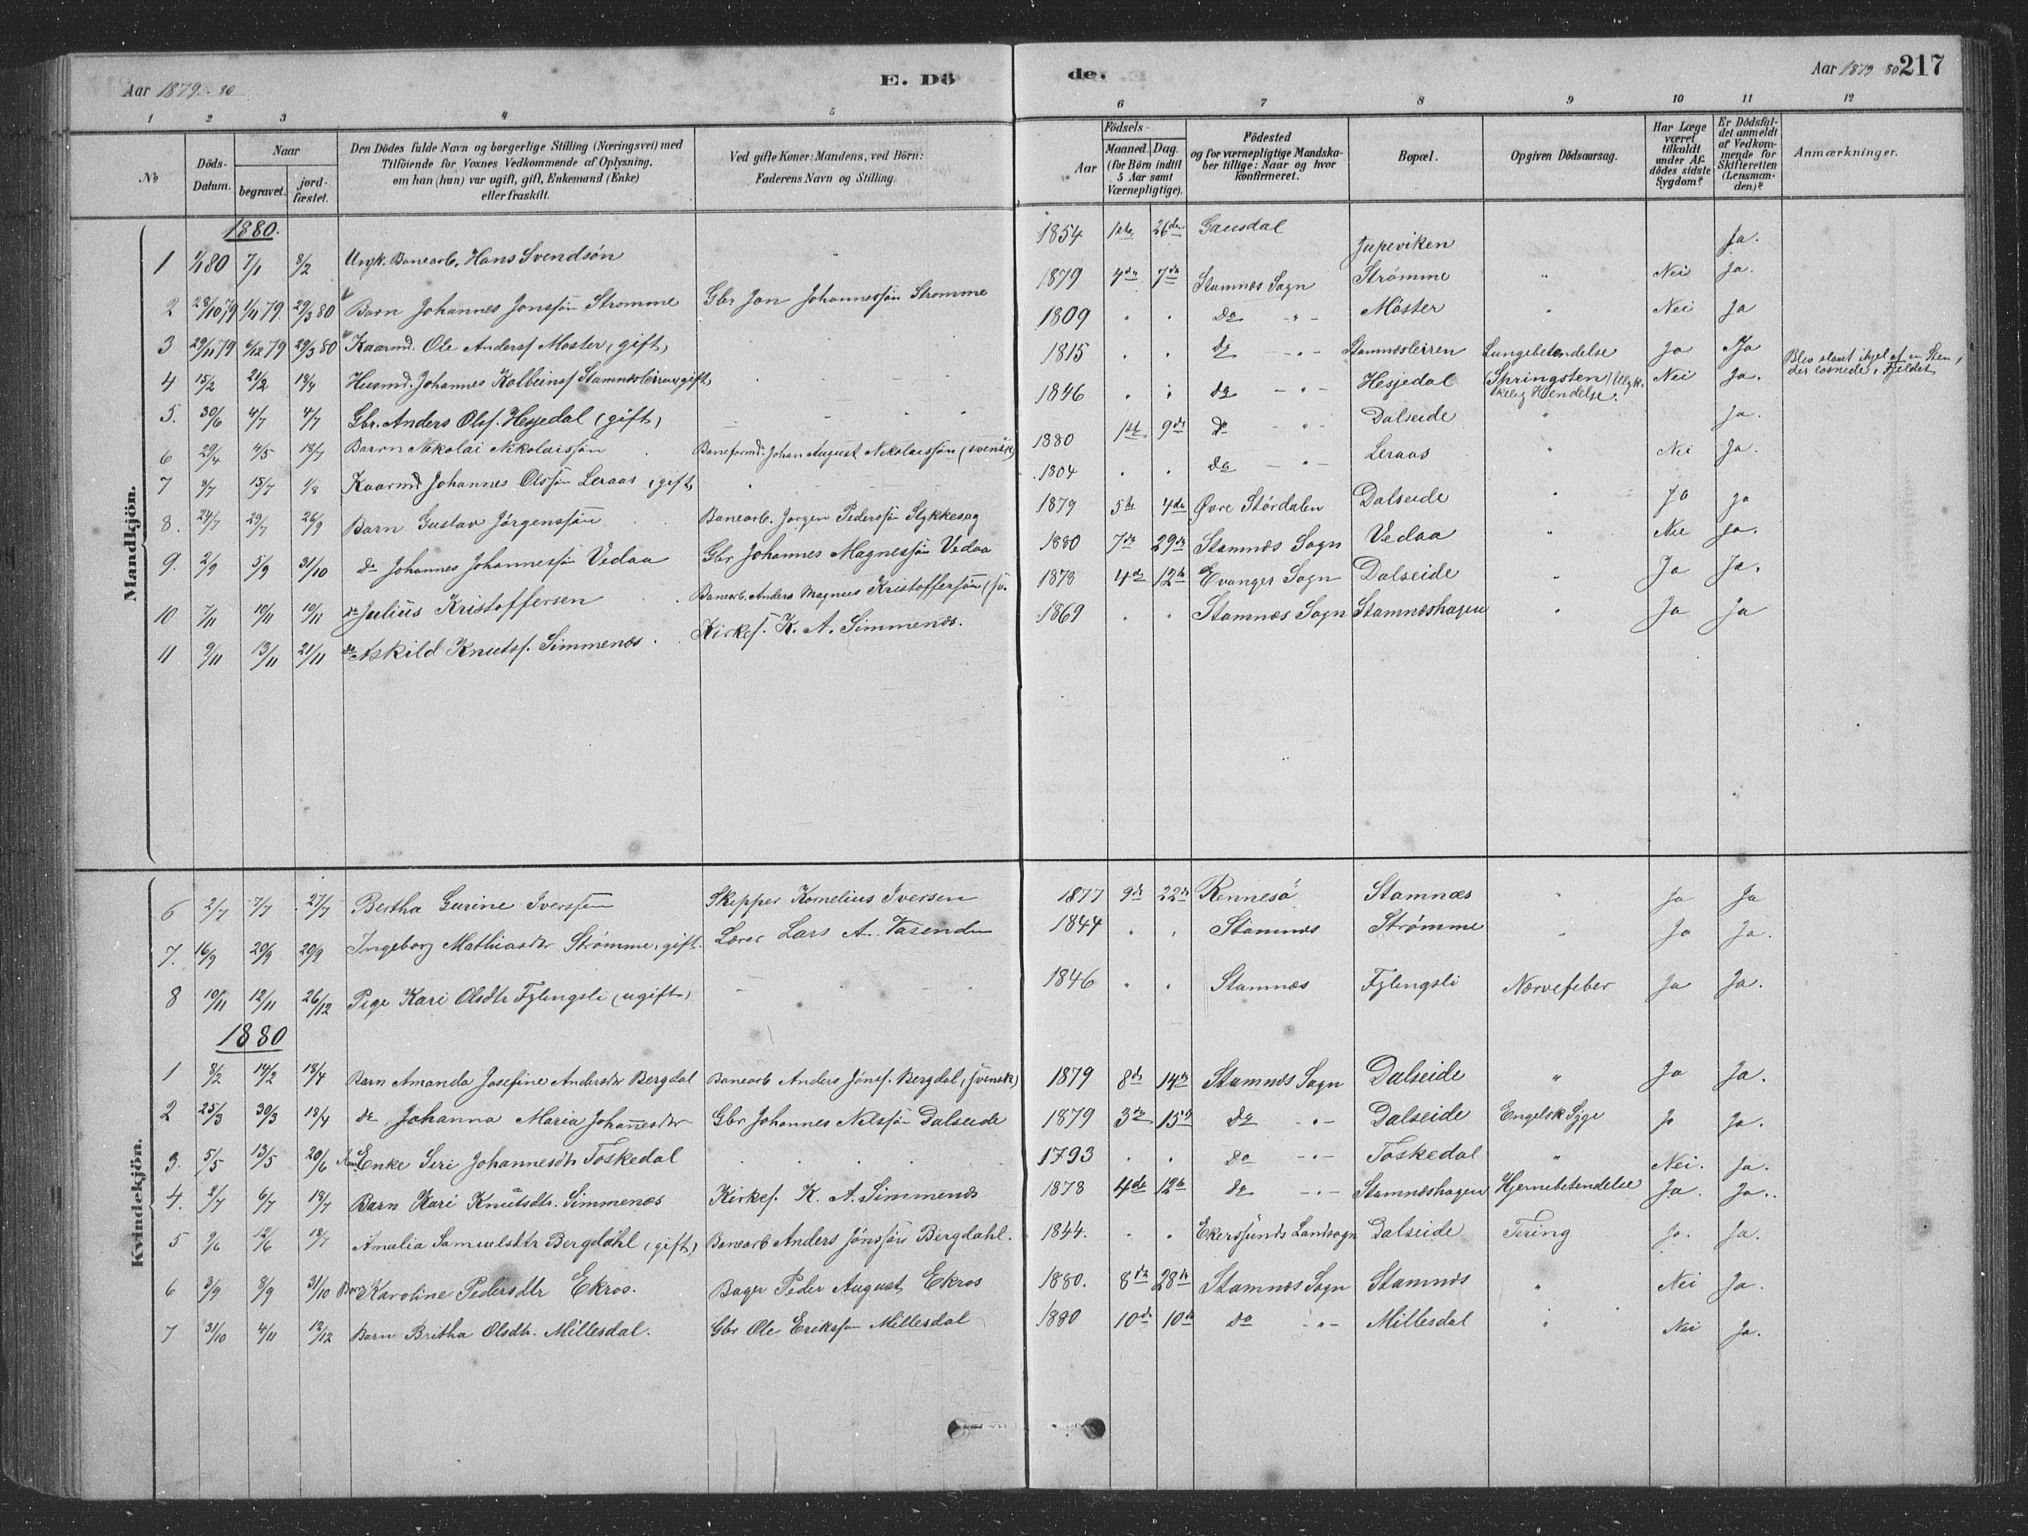 Aar 1879-80
E. Dö
de.
Aar 1879 80 217
1 2 3 4 5 6 7 8 9 10 11 12
No
Döds-Datum.
Naar
begravet.
jordfæstet.
Den Dödes fulde Navn og borgerlige Stilling (Næringsvei) med
Tilföiende for Voxnes Vedkommende af Oplysning,
om han (hun) var ugift, gift, Enkemand (Enke)
eller fraskilt.
Ved gifte Koner: Mandens, ved Börn:
Faderens Navn og Stilling.
Födsels-
Aar
Maaned. Dag.
(for Börn indtil
5 Aar samt
Værnepligtige).
Födested
og for værnepligtige Mandska-
ber tillige: Naar og hvor
konfirmeret.
Bopæl.
Opgiven Dödsaarsag.
Har Læge
været
tilkaldt
under Af-
dödes sidste
Sygdom?
Er Dödsfal-
det anmeldt
af Vedkom-
mende for
Skifteretten
(Lensman-
den)?
Anmærkninger.
Mandkjön.
1880.
1 1/1 80 7/1 8/2 Ungk. Banearb. Hans Svendsön 1854 1ste 26de Gausdal Jupeviken Ja.
2 28/10 79 1/11 79 29/3 80 Barn Johannes Jonssön Strømme Gbr Jon Johannessön Strømme 1879 4de 7de Stamnæs Sogn Strømme " Nei Ja.
3 29/11 79 6/12 79 29/3 80 Kaarmd. Ole Anders. Moster (gift) 1809 " " do - " - Moster " Nei Ja
4 15/2 21/2 18/4 Husmd. Johannes Kolbeinsf Stamnæsleiren (gift) 1815 " " do - " - Stamnæsleiren Lungebetendelse Ja Ja
5. 30/6 4/7 4/7 Gbr. Anders Olsf. Hesjedal (gift) 1846 " " do - " - Hesjedal (Springsten) Ulyk-
kelig Hendelse. Nei Ja. Blev slaaet ihjel af en Sten,
der losnede i Fjeldet
6 29/4 4/5 18/7 Barn Nikolai Nikolaissön Baneformd. Johan August Nikolaissön (svensk) 1880 1ste 9de do - " - Dalseide " Ja.
7 9/7 15/7 1/8 Kaarmd Johannes Olssön Leraas (gift) 1804 " " do - " - Leraas " Nei Ja.
8. 24/7 29/7 26/9 Barn Gustav Jørgenssön Banearb. Jørgen Pederssön Stykkesag 1879 5te 4de Øvre Stördalen Dalseide " Ja Ja
9. 2/9 5/9 31/10 do Johannes Johannessön Vedaa Gbr Johannes Magnessön Vedaa 1880 7de 29de Stamnæs Sogn Vedaa " Nei Ja.
10 7/11 10/11 10/11 do Julius Kristoffersen Banearb. Anders Magnus Kristofferssön (sv. 1878 4de 12te Evanger Sogn Dalseide " Ja Ja.
11 9/11 13/11 21/11 do Askild Knutsf. Simmenæs Kirkes. K. A. Simmenæs. 1869 " " Stamnæs Sogn Stamnæshagen " Ja Ja
Kvindekjön.
6 2/7 7/7 27/7 Bertha Gurine Iverssön Skipper Kornelius Iversen 1877 9de 22de Rennesö Stamnæs " Ja Ja
7. 16/9 20/9 20/9 Ingeborg Mathiasdtr Strømme, gift. Lærer Lars A. Vasenden 1844 " " Stamnæs Strømme " Ja Ja.
8 10/11 12/11 26/12 Pige Kari Olsdtr Fylengsli (ugift) 1846 " " Stamnæs Fylengsli Nærvefeber Ja Ja.
1880
1 8/2 14/2 18/4 Barn Amanda Josefine Andersdtr Bergdal Banearb Anders Jonsf. Bergdal (svensk) 1879 8de 14de Stamnæs Sogn Dalseide " Ja Ja.
2 25/3 30/3 18/4 do Johanna Maria Johannesdtr Gbr Johannes Nilssön Dalseide 1879 3de 15de do - " - Dalseide Engelsk Syge Ja Ja.
3. 5/5 13/5 20/6 Enke Siri Johannesdtr Toskedal 1793 " " do - " - Toskedal " Nei. Ja.
4. 2/7 6/7 18/7 Barn Kari Knutsdtr. Simmenæs Kirkes. K. A. Simmenæs 1878 4de 12te do - " - Stamnæshagen Hjernebetendelse Ja. Ja.
5 9/6 12/6 18/7 Amalia Samuelsdtr Bergdahl (gift) Banearb Anders Jonssön Bergdahl. 1844. " " Ekersunds Landsogn Dalseide Tæring Ja. Ja.
6 3/9 8/9 31/10 Barn Karoline Pedersdtr Ekros. Bager Peder August Ekros 1880. 8de 28de Stamnæs Sogn Stamnæs " Nei Ja.
7 31/10 4/11 12/12 Barn Britha Olsdtr. Millesdal. Gbr Ole Erikssön Millesdal 1880 10de 10de do - " - Millesdal " Nei Ja.